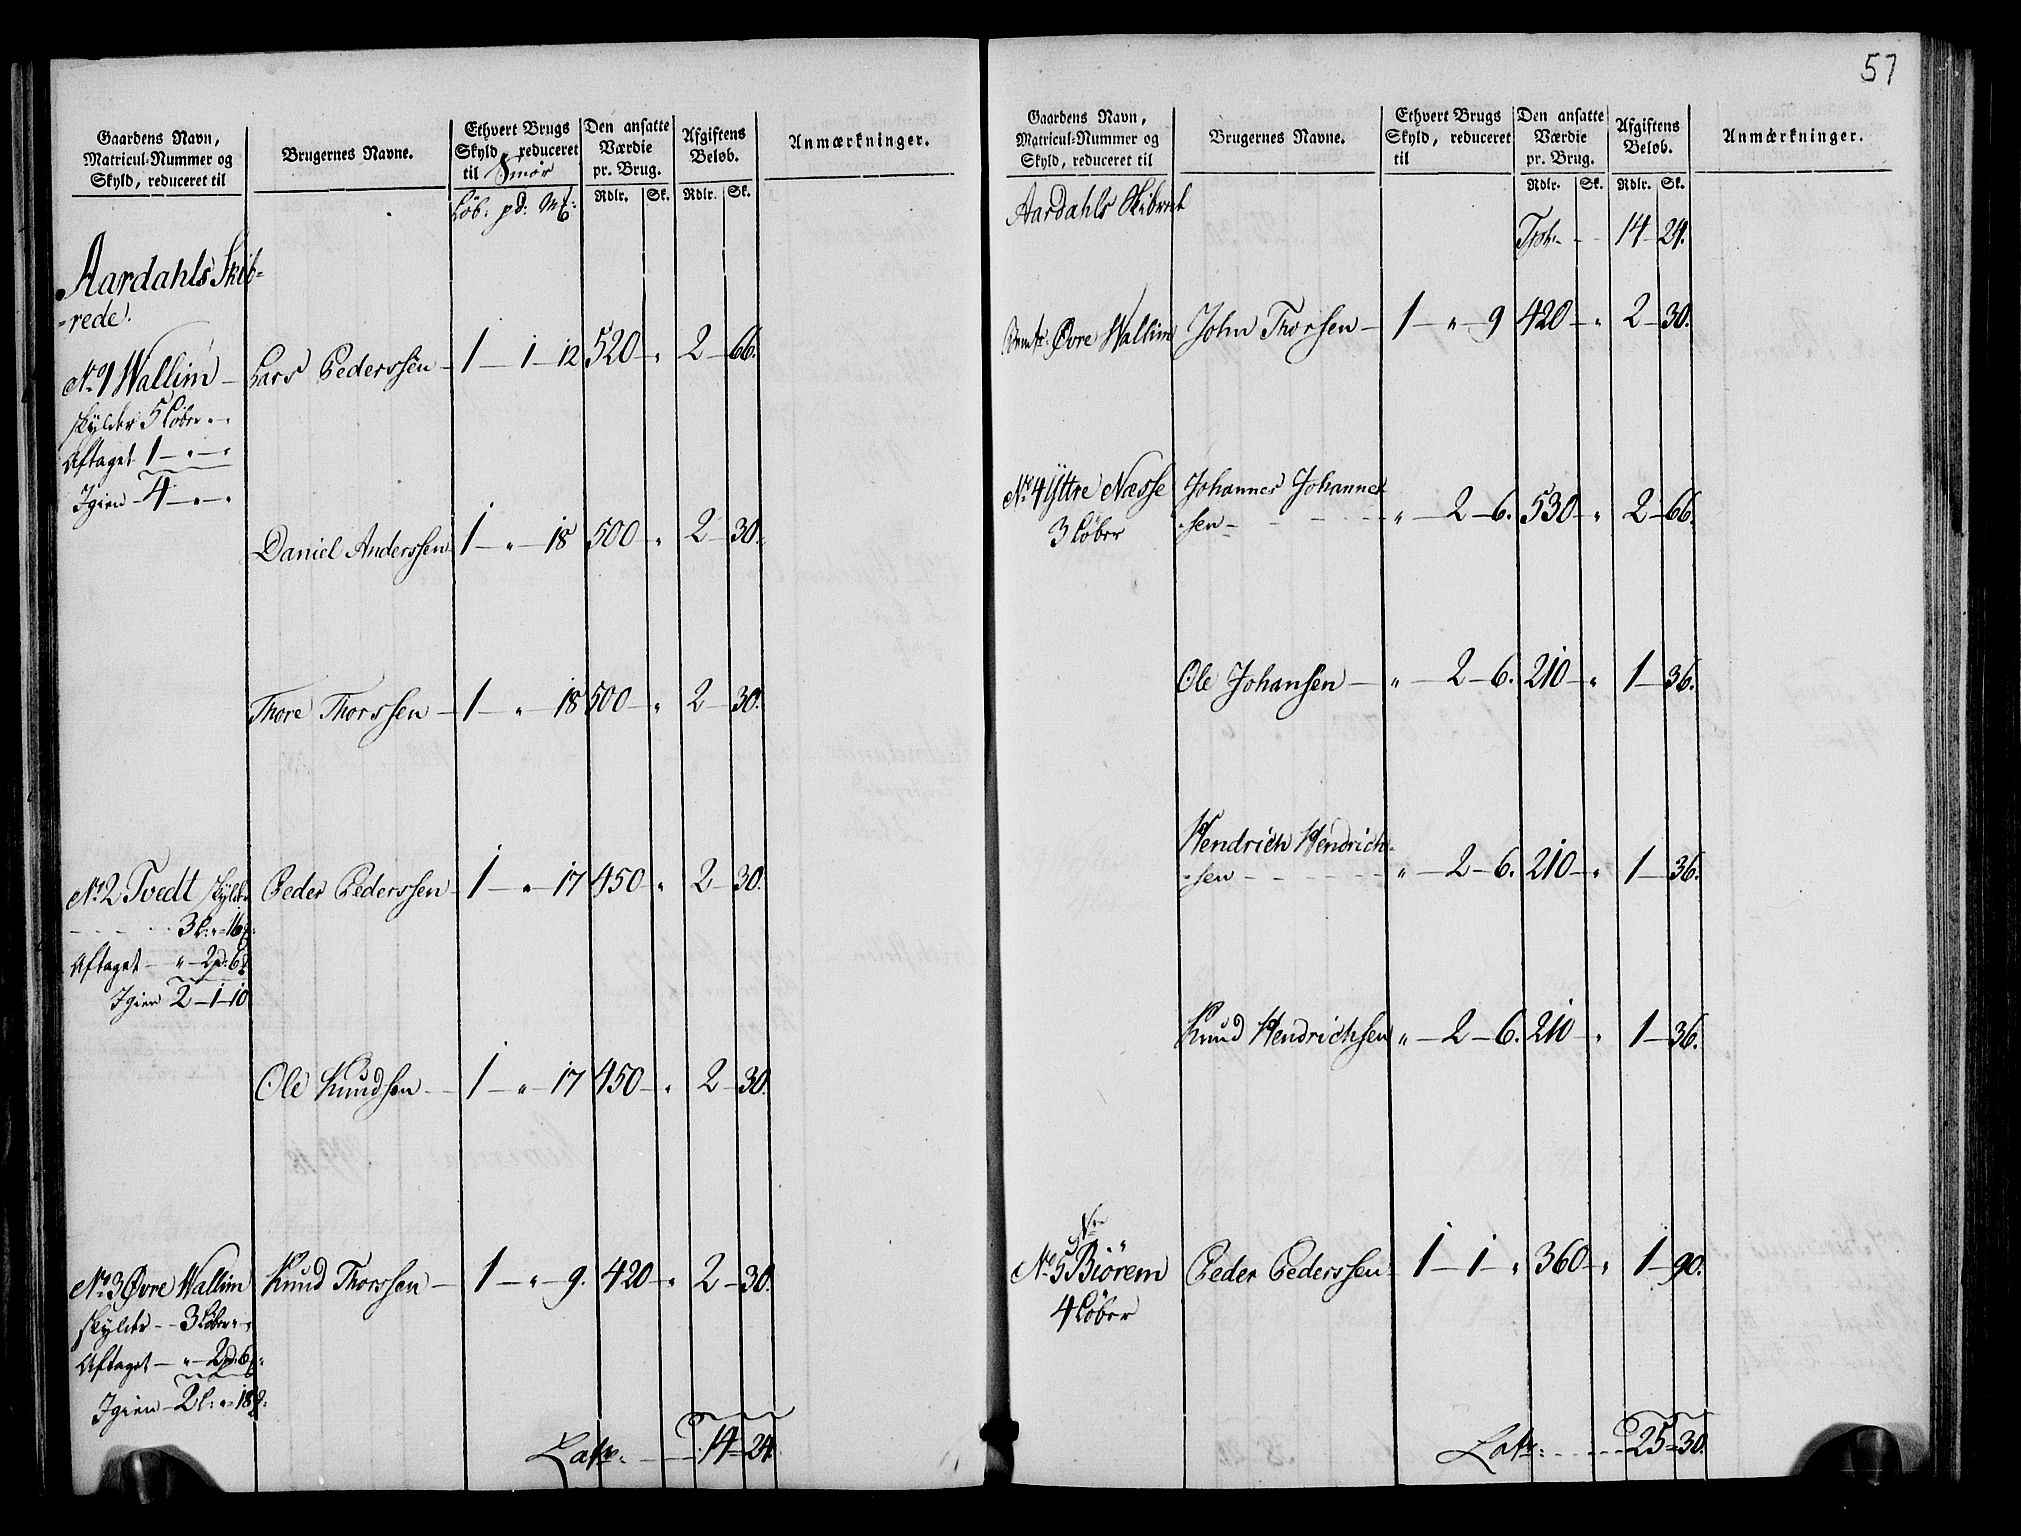 Gaardens Navn, Matricul-Nummer og Skyld, reduceret til
Brugernes Navne.
Ethvert Brugs Skyld, reduceret til Smør
Den ansatte Værdie pr. Brug.
Afgiftens Beløb.
Anmærkninger.
Løb: pd: Mk:
Rdlr. Sk. Rdlr. Sk.
Aardahls Skib-
-rede.
No 1 Wallim — Lars Pederssen — 1 — 1 — 12 520 — " 2 — 66.
skylder 5 Løber " — "
Aftaget 1 — " — "
Igien — 4 — " — "
Daniel Anderssen 1 — " — 18 500 — " 2 — 30.
Thore Thorssen — 1 — " — 18 500 — " 2 — 30.
No 2 Tvedt skylder Peder Pederssen — 1 — " — 17 450 — " 2 — 30.
3 l: " 16
Aftaget — " — 2 pd: 6
Igien 2 — 1 — 10
Ole Knudsen — 1 — " — 17 450 — " 2 — 30.
No 3 Øvre Wallim Knud Thorssen — 1 — " — 9. 420 — " 2 — 30.
skylder — 3 Løber " — "
Aftaget — " — 2 pd: 6
Igien — 2 l: " — 18
Latr: 14 — 24.
57
Gaardens Navn, Matricul-Nummer og Skyld, reduceret til
Brugernes Navne.
Ethvert Brugs Skyld, reduceret til
Den ansatte Værdie pr. Brug.
Afgiftens Beløb.
Anmærkninger.
Rdlr. Sk. Rdlr. Sk.
Aardahls Skibret
Trsp. 14 — 24.
Øvre Wallim John Thorsen — 1 — " — 9 420 — " 2 — 30.
No 4 Yttre Næsse Johannes Johannes
3 Løber -sen — " — 2 — 6. 530 — " 2 — 66.
Ole Johansen — " — 2 — 6. 210 — " 1 — 36.
Hendrich Hendrich-
-sen — " — 2 — 6. 210 — " 1 — 36.
Knud Hendrichsen " — 2 — 6. 210 — " 1 — 36.
No 5 Biörem Peder Pederssen 1 — 1 — " 360 — " 1 — 90.
4 Løber
Latr: 25 — 30.